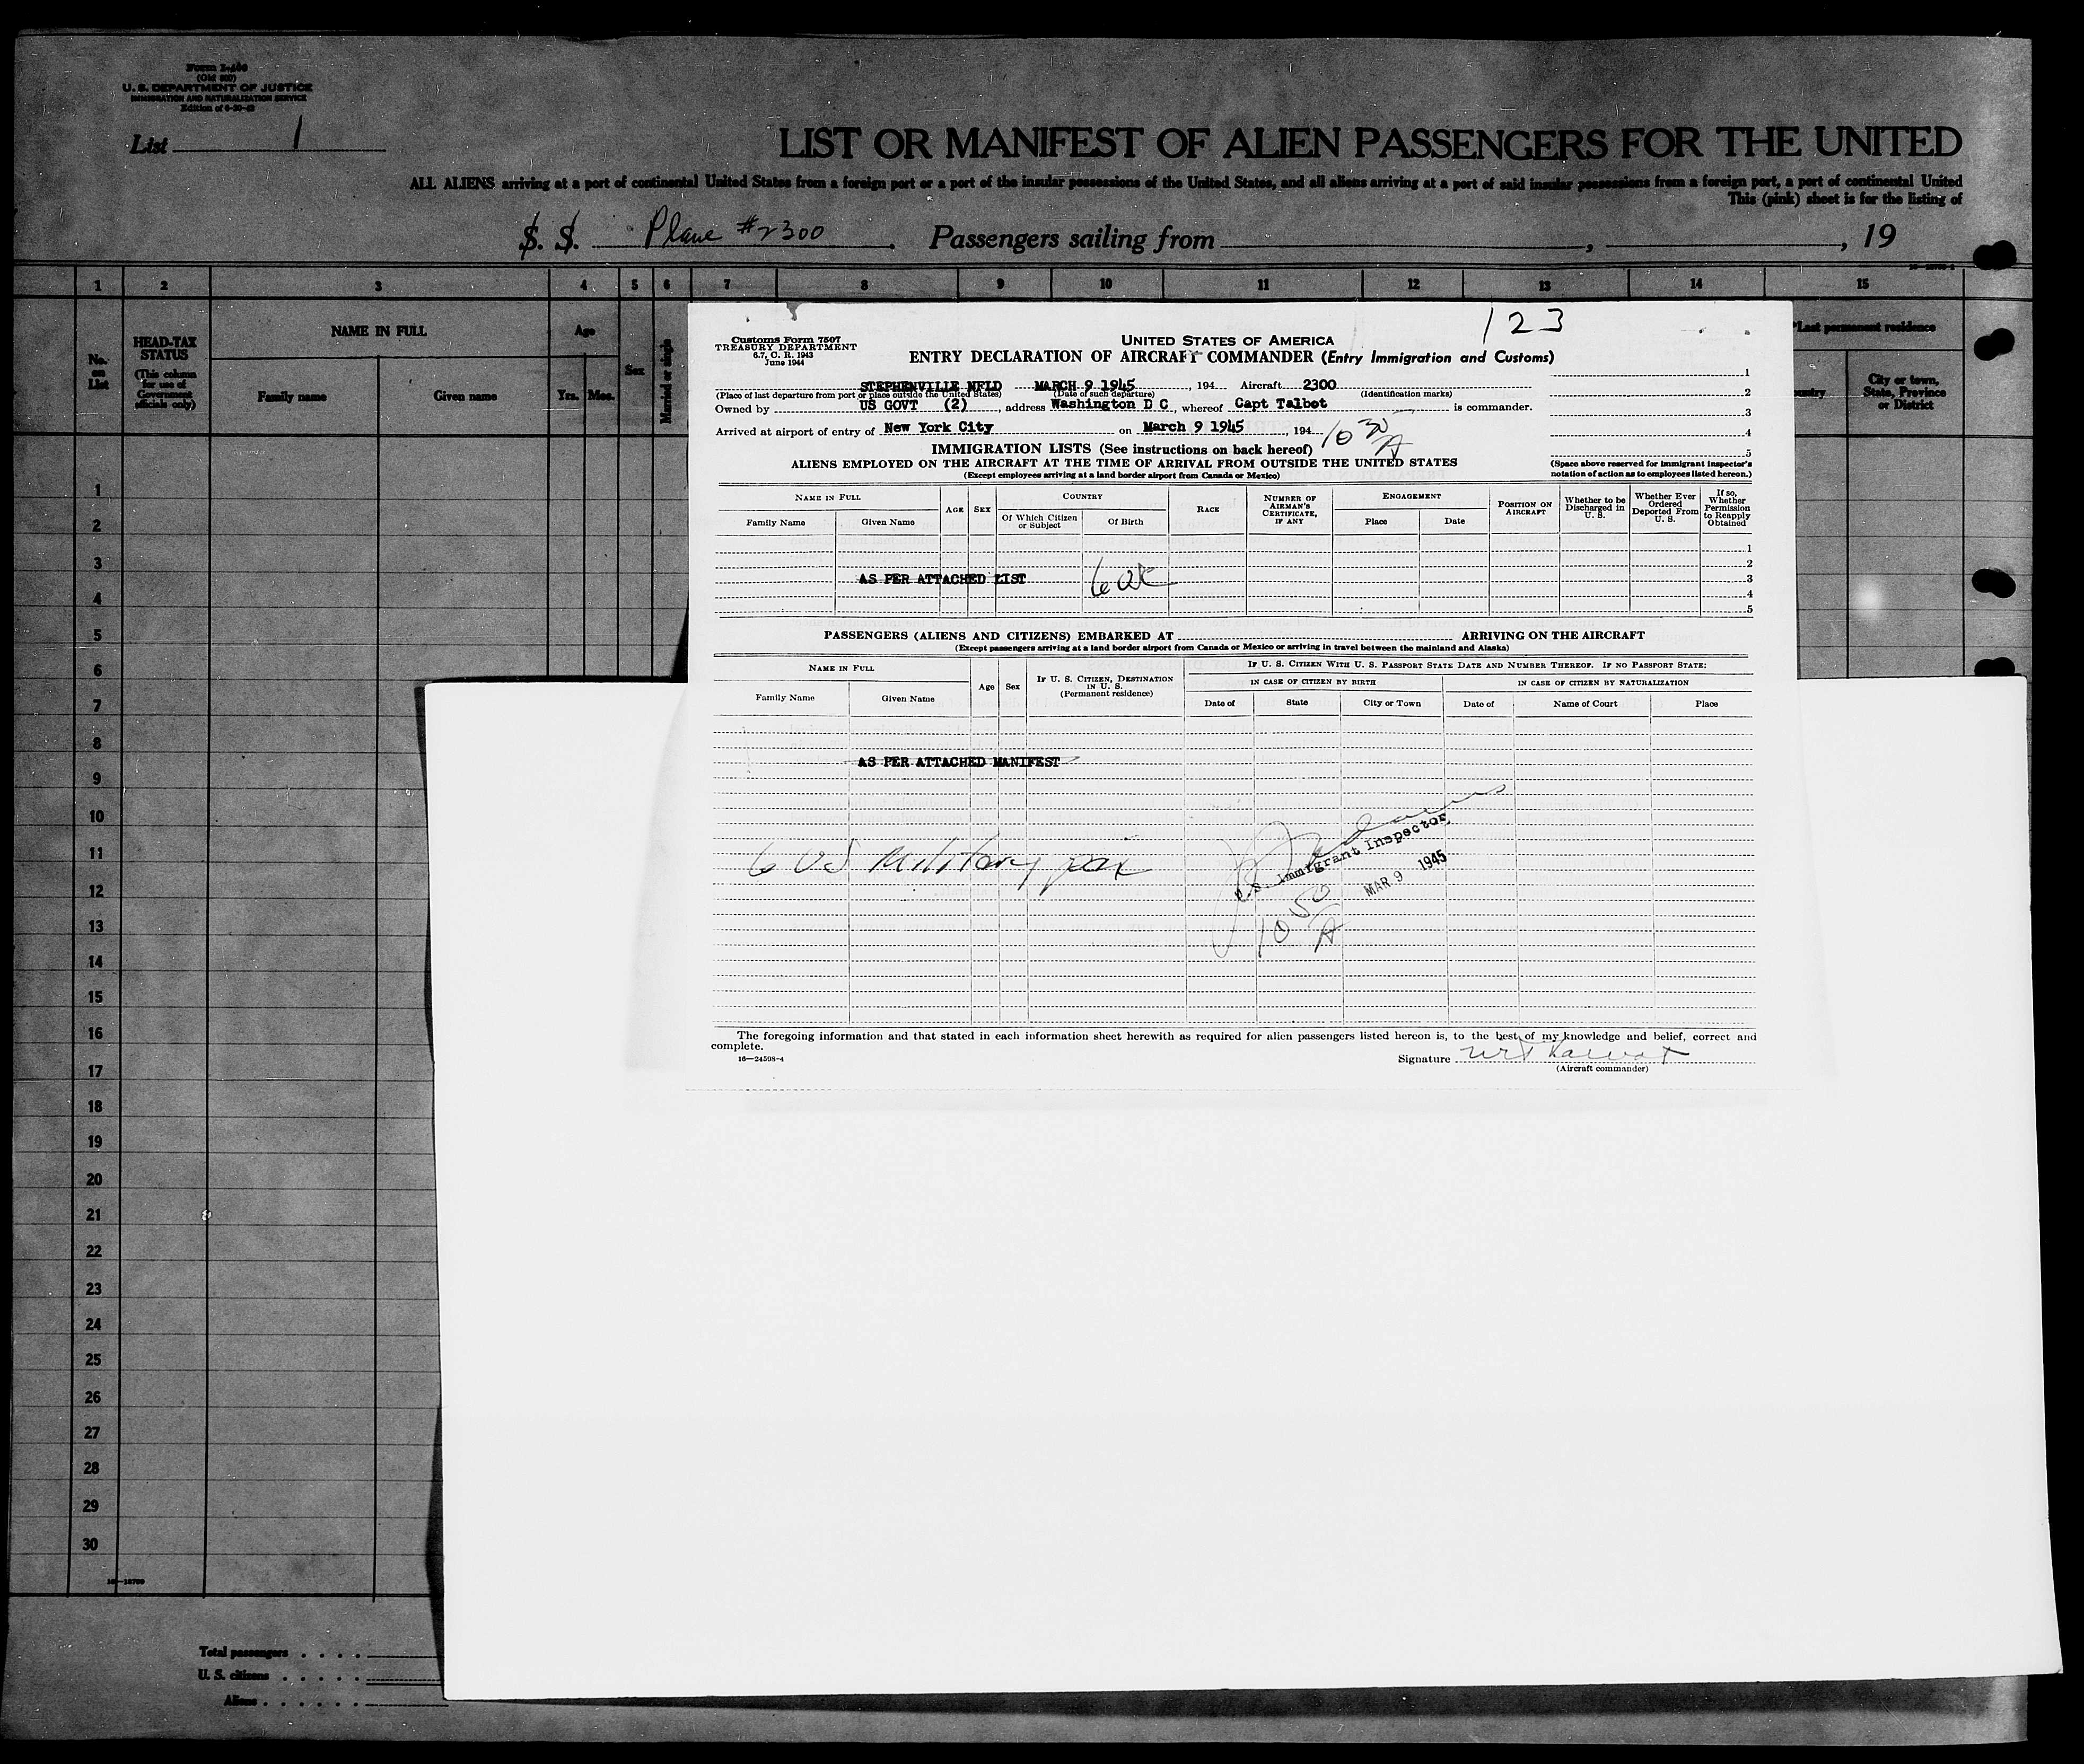 Form I-400
(Old 500)
U. S. DEPARTMENT OF JUSTICE
IMMIGRATION AND NATURALIZATION SERVICE
List 1
LIST OR MANIFEST OF ALIEN PASSENGERS FOR THE UNITED
ALL ALIENS arriving at a port of continental United States from a foreign port or a port of the insular possessions of the United States, and all aliens arriving at a port of said insular possessions from a foreign port, a port of continental United
This (pink) sheet is for the listing of
S. S. Plane #2300 Passengers sailing from , , 19
1 2 3 4 5 6 7 8 9 10 11 12 13 14 15
No. on List
HEAD-TAX STATUS
(This column for use of Government officials only)
NAME IN FULL
Family name Given name
Age
Yrs. Mos.
Sex
Married or single
*Last permanent residence
City or town, State, Province or District
1
2
3
4
5
6
7
8
9
10
11
12
13
14
15
16
17
18
19
20
21
22
23
24
25
26
27
28
29
30
Total passengers
U. S. citizens
Aliens
123
Customs Form 7507
TREASURY DEPARTMENT
6.7, C. R. 1943
June 1944
UNITED STATES OF AMERICA
ENTRY DECLARATION OF AIRCRAFT COMMANDER (Entry Immigration and Customs)
STEPHENVILLE NFLD MARCH 9 1945, 194 Aircraft 2300
(Place of last departure from port or place outside the United States) (Date of such departure) (Identification marks)
Owned by US GOVT (2), address Washington D C, whereof Capt Talbot is commander.
Arrived at airport of entry of New York City on March 9 1945, 194 10 30 A
1
2
3
4
5
IMMIGRATION LISTS (See instructions on back hereof)
ALIENS EMPLOYED ON THE AIRCRAFT AT THE TIME OF ARRIVAL FROM OUTSIDE THE UNITED STATES
(Except employees arriving at a land border airport from Canada or Mexico)
(Space above reserved for immigrant inspector's notation of action as to employees listed hereon.)
NAME IN FULL
Family Name Given Name
AGE SEX
COUNTRY
Of Which Citizen or Subject Of Birth
RACE
NUMBER OF AIRMAN'S CERTIFICATE, IF ANY
ENGAGEMENT
Place Date
POSITION ON AIRCRAFT
Whether to be Discharged in U. S.
Whether Ever Ordered Deported From U. S.
If so, Whether Permission to Reapply Obtained
1
2
AS PER ATTACHED LIST 3
4
5
PASSENGERS (ALIENS AND CITIZENS) EMBARKED AT ARRIVING ON THE AIRCRAFT
(Except passengers arriving at a land border airport from Canada or Mexico or arriving in travel between the mainland and Alaska)
NAME IN FULL
Family Name Given Name
Age Sex
IF U. S. CITIZEN, DESTINATION IN U. S.
(Permanent residence)
IF U. S. CITIZEN WITH U. S. PASSPORT STATE DATE AND NUMBER THEREOF. IF NO PASSPORT STATE:
IN CASE OF CITIZEN BY BIRTH IN CASE OF CITIZEN BY NATURALIZATION
Date of State City or Town Date of Name of Court Place
AS PER ATTACHED MANIFEST
6 US Military pax
U.S. Immigrant Inspector
MAR 9 1945
10 50 A
The foregoing information and that stated in each information sheet herewith as required for alien passengers listed hereon is, to the best of my knowledge and belief, correct and
complete.
16—24598-4
Signature
(Aircraft commander)